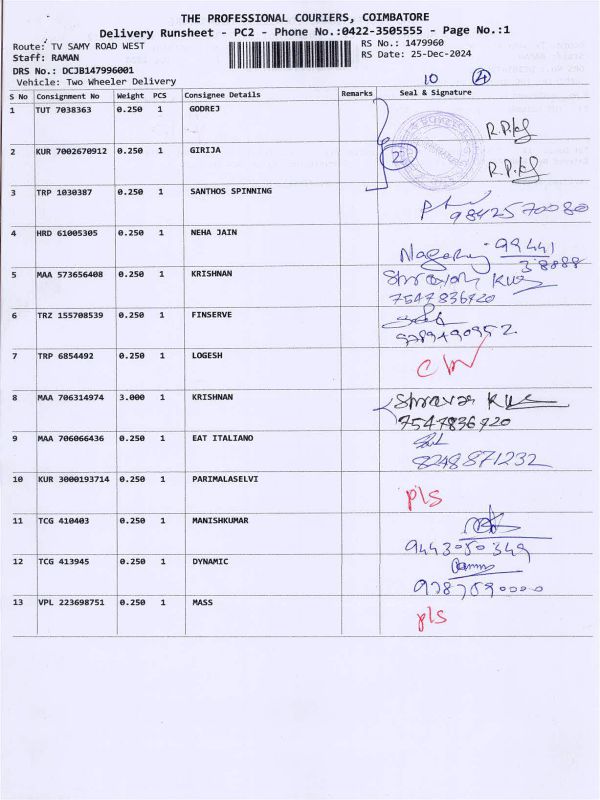 THE PROFESSIONAL COURIERS, COIMBATORE
Delivery Runsheet - PC2 - Phone No.:0422-3505555 - Page No.:1
Route: TV SAMY ROAD WEST RS No.: 1479960
Staff: RAMAN RS Date: 25-Dec-2024
DRS No.: DCJB147996001
Vehicle: Two Wheeler Delivery
10 4
S No Consignment No Weight PCS Consignee Details Remarks Seal & Signature
1 TUT 7038363 0.250 1 GODREJ
2 KUR 7002670912 0.250 1 GIRIJA 2
3 TRP 1030387 0.250 1 SANTHOS SPINNING
9842570080
4 HRD 61005305 0.250 1 NEHA JAIN
99441
38888
5 MAA 573656408 0.250 1 KRISHNAN
7547836920
6 TRZ 155708539 0.250 1 FINSERVE
7 TRP 6854492 0.250 1 LOGESH
8 MAA 706314974 3.000 1 KRISHNAN
7547836920
9 MAA 706066436 0.250 1 EAT ITALIANO
8248871232
10 KUR 3000193714 0.250 1 PARIMALASELVI
pls
11 TCG 410403 0.250 1 MANISHKUMAR
9443050349
12 TCG 413945 0.250 1 DYNAMIC
13 VPL 223698751 0.250 1 MASS
pls